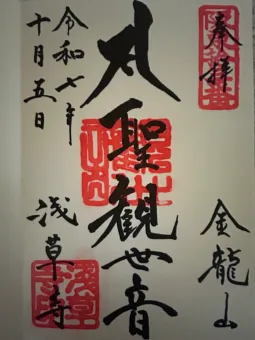 奉拝
金龍山
聖観世音
令和七年
十月五日
浅草寺